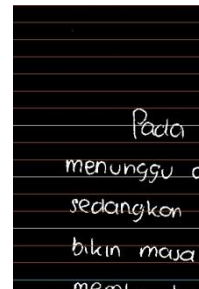 Pada
menunggu
sedangkan
bikin masa